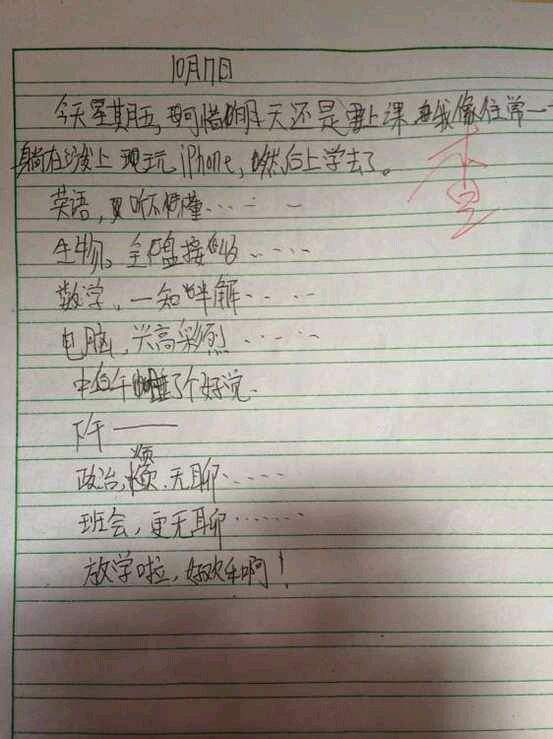 10月17日
今天星期五,可惜明天还是要上课 我像往常一
躺在沙发上 现玩iPhone,然后上学去了。
英语,又听不懂……
生物,全盘接收……
数学,一知半解……
电脑,兴高彩烈……
中午睡了个好觉.
下午——
政治,烦.无聊……
班会,更无聊……
放学啦,好欢乐啊!